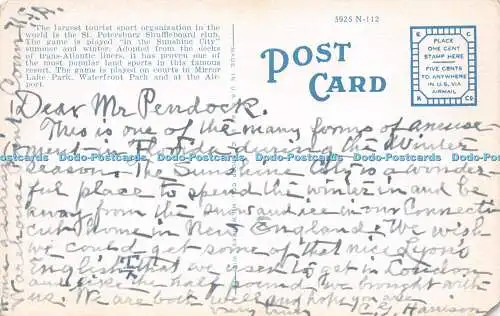 The largest tourist sport organization in the
world is the St. Petersburg Shuffleboard club.
The game is played "in the Sunshine City"
summer and winter. Adopted from the decks
of trans-Atlantic liners, it has proven one of
the most popular land sports in this famous
resort. The game is played on courts in Mirror
Lake Park, Waterfront Park and at the Air-
port.
5925 N-112
POST
CARD
PLACE
ONE CENT
STAMP HERE
FIVE CENTS
TO ANYWHERE
IN U.S. VIA
AIRMAIL
Dear Mr Pendock.
This is one of the many forms of amuse
ment in Florida during the Winter
season. The Sunshine City is a wonder
ful place to spend the winter in and be
away from the snow and ice in our Connecti
cut home in New England. We wish
we could get some of that nice Lyons
English that we used to get in London
and like the half pound we brought with
us. We are both well and hope you are
C.G. Harrison